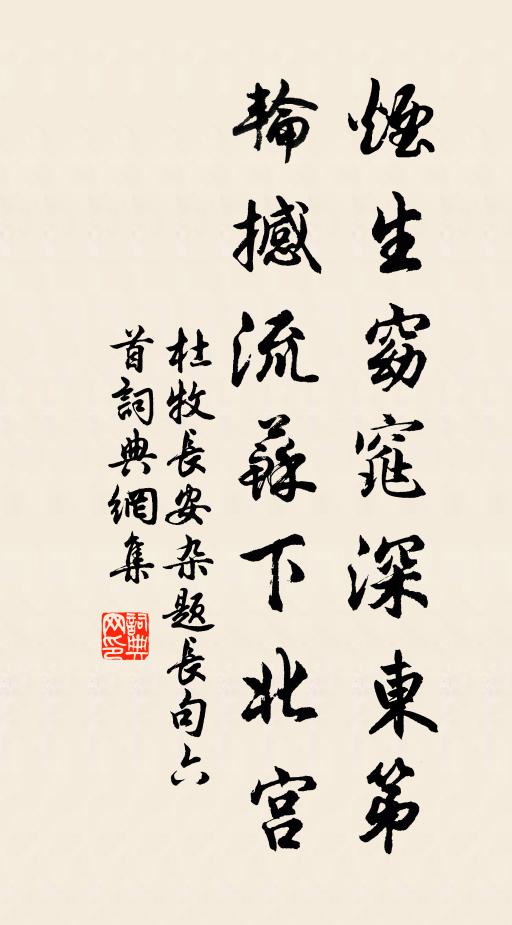 煙生窈窕深東第
輪撼流蘇下北宫
杜牧長安杂题長句六
首詞典網集
詞典网印